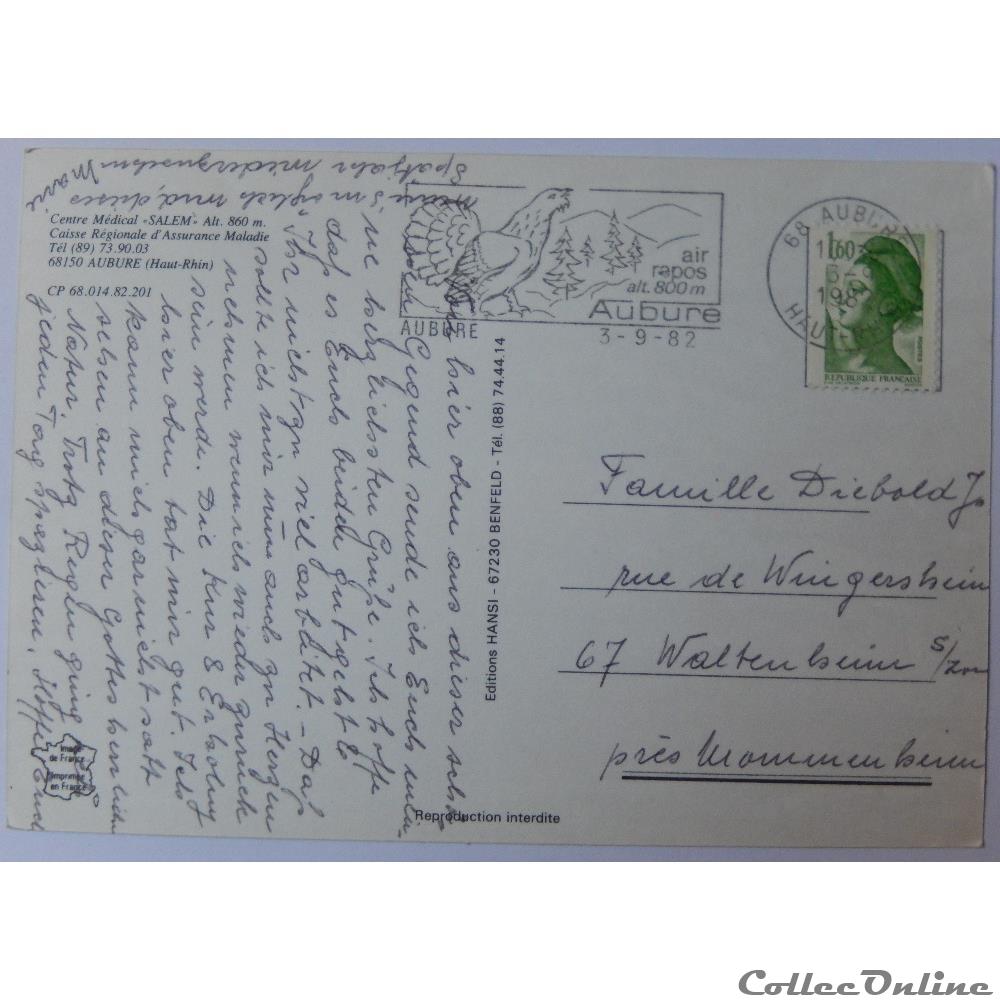 Centre Médical «SALEM» Alt. 860 m.
Caisse Régionale d'Assurance Maladie
Tél (89) 73.90.03
68150 AUBURE (Haut-Rhin)
CP 68.014.82.201
AUBURE
air
repos
alt. 800 m
Aubure
3-9-82
68 AUBURE
HAUT-RHIN
1,60
POSTES
REPUBLIQUE FRANÇAISE
hier oben aus dieser schö-
nen Gegend sende ich Euch mei-
ne herzlichsten Grüße. Ich hoffe
daß es Euch beiden gut geht &
Ihr nicht zu viel arbeitet. - Daß
sollte ich mir nun auch zu Herzen
nehmen wenn ich wieder zurück
sein werde. Die Kur & Erholung
hier oben tat mir gut. Ich
kann mich gar nicht satt
sehen an dieser Gottes herrlichen
Natur. Trotz Regen ging ich
jeden Tag spazieren. Hoffe Euch
wenn's möglich wird, dieses
Spätjahr wiederzusehen
Marie
Editions HANSI - 67230 BENFELD - Tél. (88) 74.44.14
Famille Diebold J.
rue de Wingersheim
67 Waltenheim s/Zorn
près Mommenheim
Image
de France
Imprimé
en France
Reproduction interdite
CollecOnline